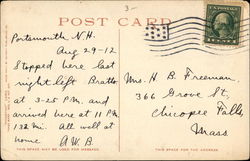 3-
POST CARD
Portsmouth N.H.
Aug 29-12
Stopped here last
night left Brattle
at 3-25 P.M. and
arrived here at 11 P.M.
132 mi. All well at
home A.W.B.
Mrs. H B Freeman
366 Grove St.
Chicopee Falls
Mass
THIS SPACE MAY BE USED FOR MESSAGE
THIS SPACE IS FOR ADDRESS